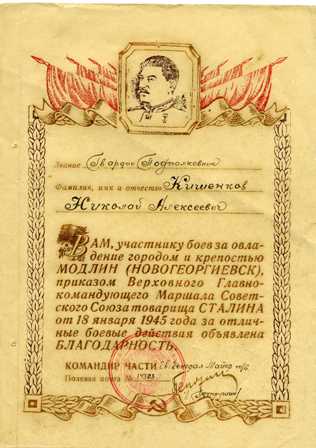 Звание Гвардии Подполковник
Фамилия, имя и отчество Кишенков
Николай Алексеевич
ВАМ, участнику боев за овла-
дение городом и крепостью
МОДЛИН (НОВОГЕОРГИЕВСК),
приказом Верховного Главно-
командующего Маршала Совет-
ского Союза товарища СТАЛИНА
от 18 января 1945 года за отлич-
ные боевые действия объявлена
БЛАГОДАРНОСТЬ.
КОМАНДИР ЧАСТИ Гв. Генерал Майор
Полевая почта №